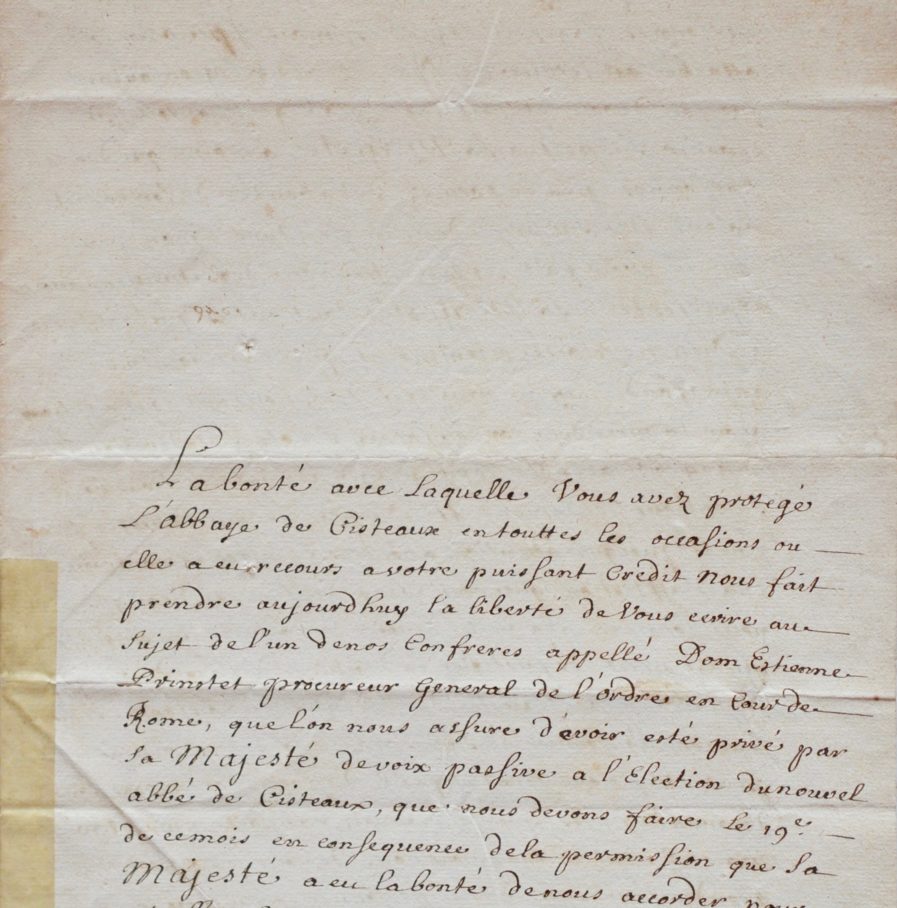 La bonté avec Laquelle Vous avez protegé
L'abbaye de Cisteaux entouttes les occasions ou
elle a eu recours a votre puissant Credit nous fait
prendre aujourdhuy la liberté de Vous ecrire au
sujet de l'un denos Confreres appellé Dom Estienne
Prinstet procureur General de l'ordre en Cour de
Rome, que l'on nous assure d'avoir esté privé par
sa Majesté de voix passive a l'Election du nouvel
abbé de Cisteaux, que nous devons faire Le 19e
de cemois en consequence dela permission que sa
Majesté a eu la bonté denous accorder pour